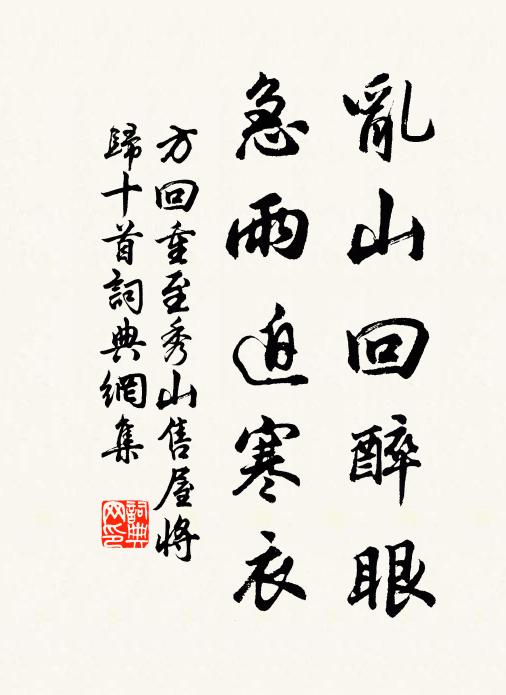 亂山回醉眼
急雨迫寒衣
方回重至秀山售屋將
歸十首詞典網集
詞典网印